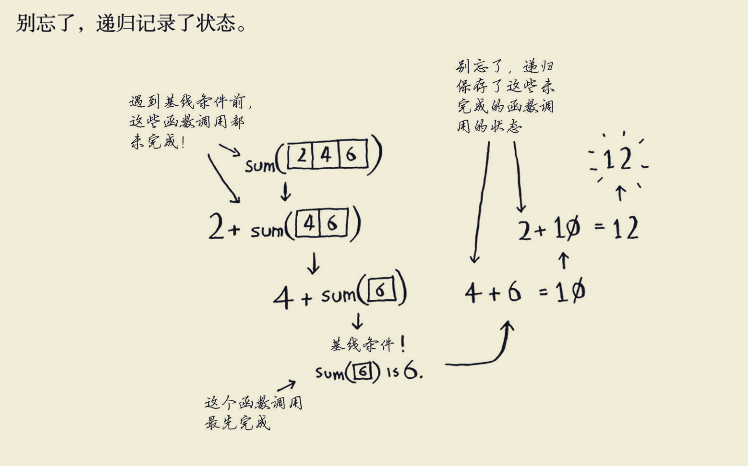 别忘了，递归记录了状态。
遇到基线条件前，
这些函数调用都
未完成！
sum(2 4 6)
2 + sum(4 6)
4 + sum(6)
基线条件！
sum(6) is 6.
这个函数调用
最先完成
别忘了，递归
保存了这些未
完成的函数调
用的状态
12
2 + 10 = 12
4 + 6 = 10